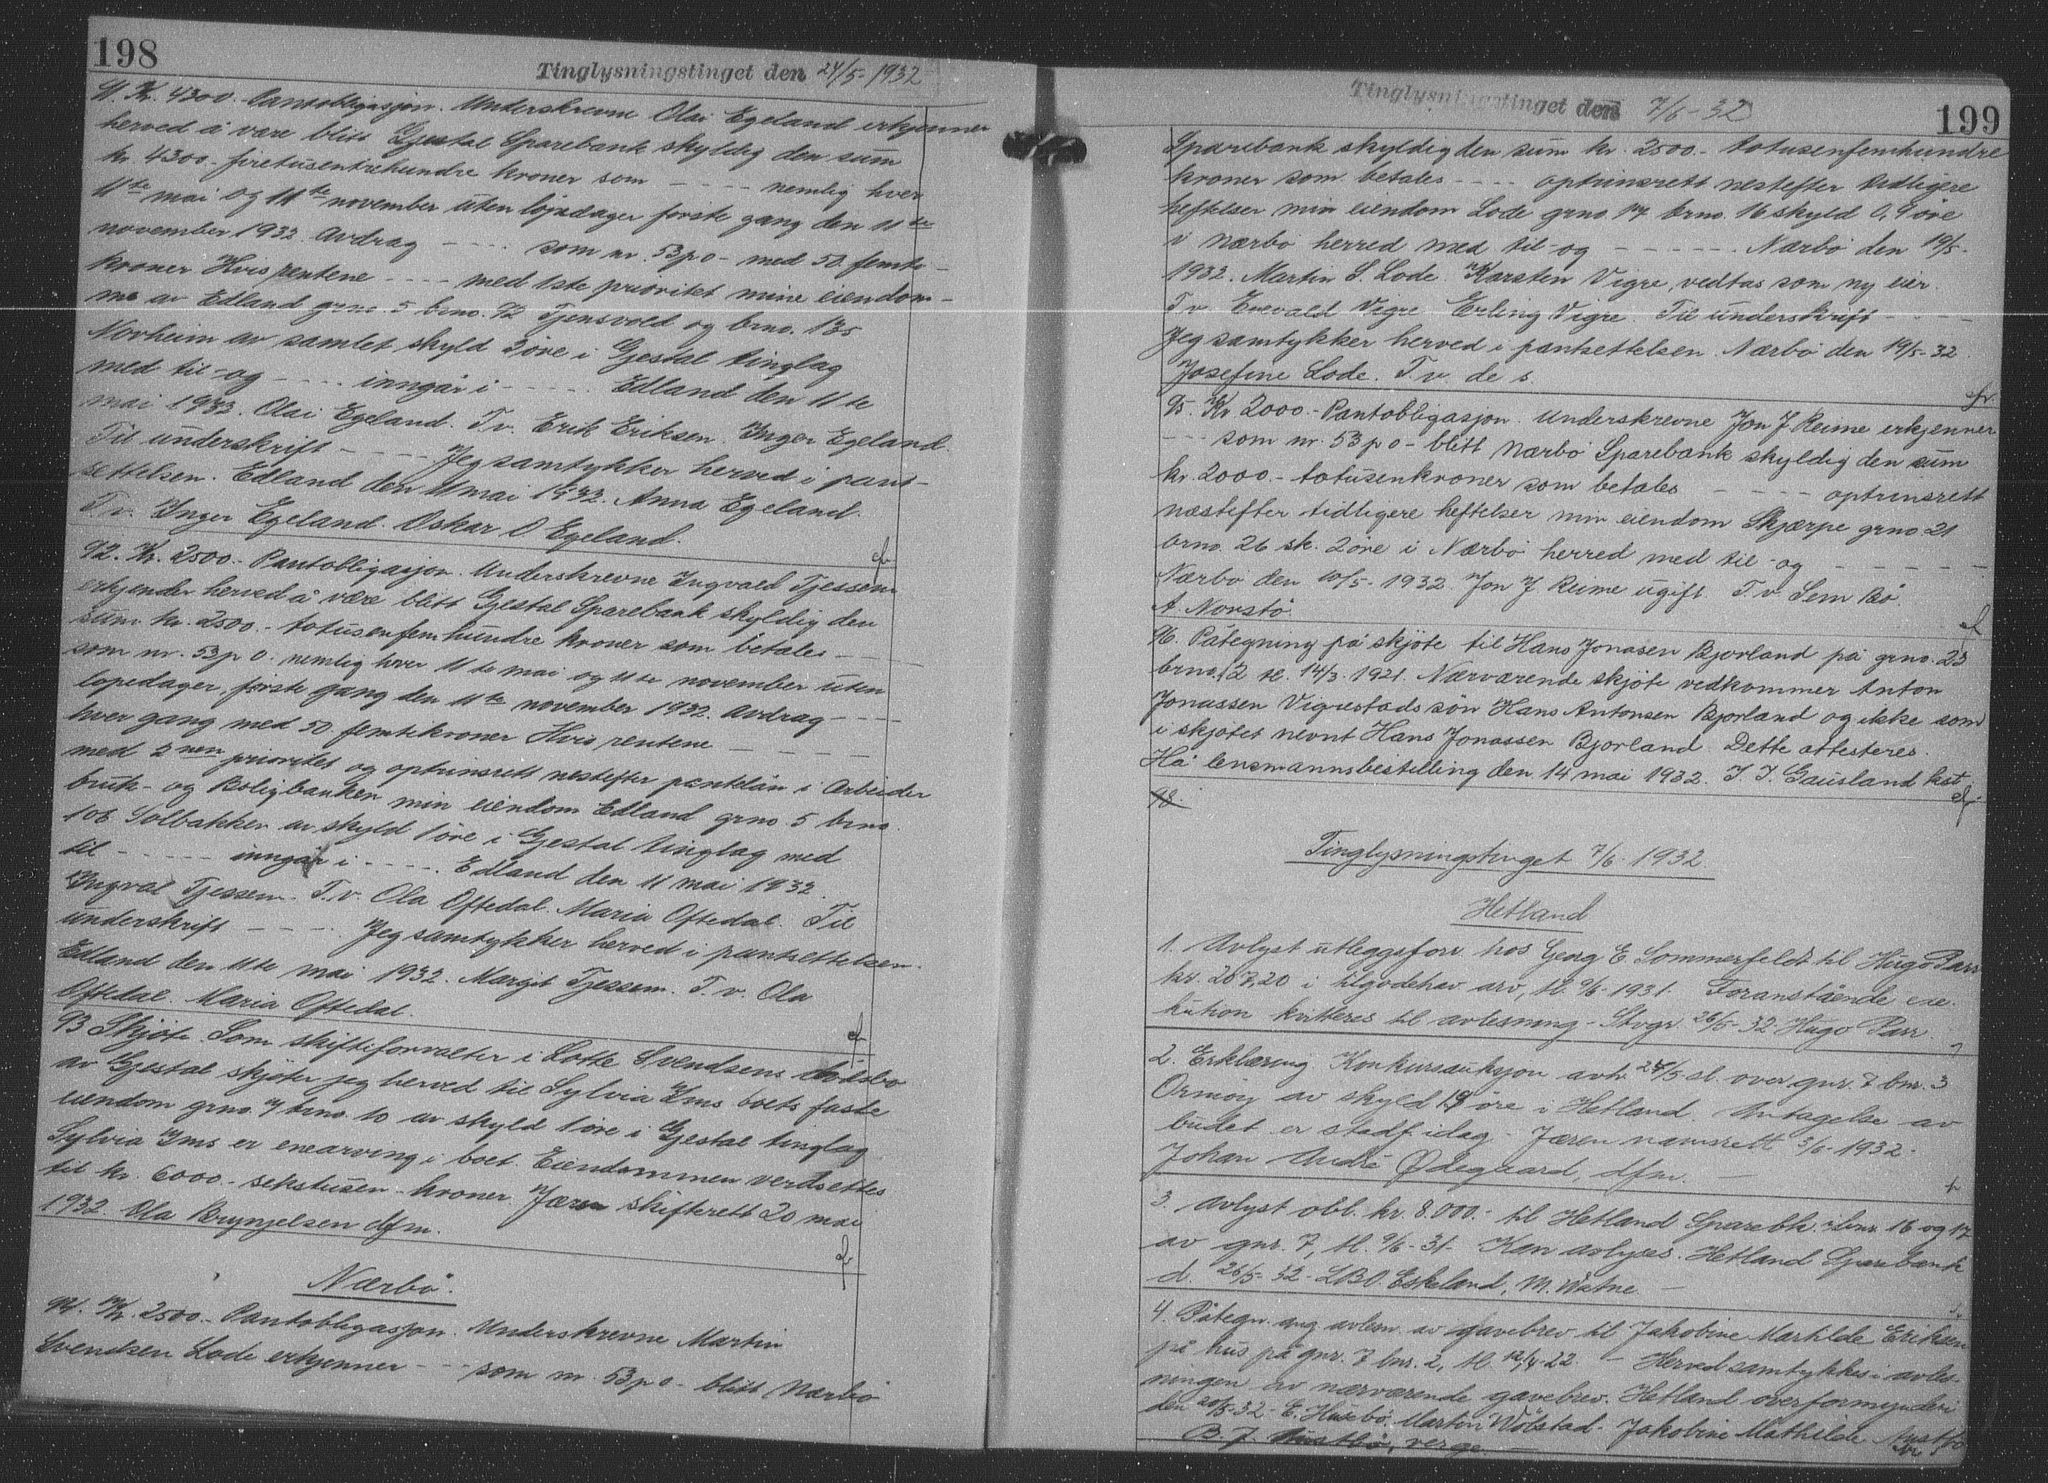 198
Tinglysningstinget den 24/5-1932
91. Kr. 4300.- Pantobligasjon. Underskrevne Olai Egeland erkjenner
herved å være blitt Gjestal Sparebank skyldig den sum
kr. 4300.- firetusentrehundre kroner som - - - - nemlig hver
11te mai og 11te november uten løpedager første gang den 11te
november 1932. Avdrag - - - - som nr. 53 p 0 - med 50 femti-
kroner Hvis rentene - - - - med 1ste prioritet mine eiendom-
me av Edland grno. 5 brno. 92 Tjensvold og brno. 135
Norheim av samlet skyld 2 øre i Gjestal tinglag
med til-og - - - - inngår i - - - - Edland den 11te
mai 1932. Olai Egeland. T.v. Erik Eriksen. Inger Egeland.
Til underskrift - - - - Jeg samtykker herved i pant-
settelsen. Edland den 11 mai 1932. Anna Egeland.
T.v. Inger Egeland. Oskar O Egeland.
92. Kr. 2500.- Pantobligasjon. Underskrevne Ingvald Tjessem
erkjender herved å være blitt Gjestal Sparebank skyldig den
sum kr. 2500.- totusenfemhundre kroner som betales - - -
som nr. 53 p 0. nemlig hver 11te mai og 11te november uten
løpedager, første gang den 11te november 1932. Avdrag - - - -
hver gang med 50 femtikroner Hvis rentene - - - -
med 2nen prioritet og optrinsrett nestefter pantelån i Arbeider
bruk- og Boligbanken min eiendom Edland grno. 5 brno.
106 Solbakken av skyld 1 øre i Gjestal tinglag med
til - - - - - inngår i - - - - . Edland den 11 mai 1932
Ingval Tjessem. T.v. Ola Oftedal. Maria Oftedal. Til
underskrift - - - - Jeg samtykker herved i pantsettelsen.
Edland den 11te mai 1932. Margit Tjessem. T.v. Ola
Oftedal. Maria Oftedal.
93 Skjøte. Som skiftiforvalter i Lotte Svendsens dødsbo
av Gjestal skjøter jeg herved til Sylvia Ims boets faste
eiendom grno. 7 brno. 10 av skyld 1 øre i Gjestal tinglag
Sylvia Ims er enearving i boet. Eiendommen verdsettes
til kr. 6000.- sekstusen-kroner. Jæren skifterett 20 mai
1932. Ola Brynjelsen dfm.
Nærbø.
94. Kr. 2500.- Pantobligasjon. Underskrevne Martin
Svendsen Lode erkjenner - - - som nr. 53 p 0 - blitt Nærbø
Tinglysningstinget den 7/6-32
199
Sparebank skyldig den sum kr. 2500.- totusenfemhundre
kroner som betales - - - - optrinsrett nestefter tidligere
heftelser min eiendom Lode grno. 17 brno. 16 skyld 0,9 øre
i Nærbø herred med til-og - - - - - - Nærbø den 19/5-
1932. Martin S. Lode. Karsten Vigre vedtas som ny eier.
T.v. Enevald Vigre Erling Vigre. Til underskrift - - - -
Jeg samtykker herved i pantsettelsen. Nærbø den 19/5-32.
Josefine Lode. T.v. de s.
95. Kr. 2000.- Pantobligasjon. Underskrevne Jon J Reime erkjenner
- - - som nr. 53 p 0 - blitt Nærbø Sparebank skyldig den sum
kr. 2000.- totusenkroner som betales - - - - optrinsrett
næstefter tidligere heftelser min eiendom Skjærpe grno. 21
brno. 26 sk. 2 øre i Nærbø herred med til-og - - - - - -
Nærbø den 10/5-1932. Jon J Reime ugift. T.v. Sem Bø.
A. Norstø.
96. Påtegning på skjøte til Hans Jonasen Bjorland på grno. 23
brno. 12 tl. 14/3.1921. Nærværende skjøte vedkommer Anton
Jonassen Vigrestads søn Hans Antonsen Bjorland og ikke som
i skjøtet nevnt Hans Jonassen Bjorland. Dette attesteres.
Hå lensmannsbestilling den 14 mai 1932. I. I. Gausland kst
Tinglysningstinget 7/6-1932.
Hetland
1. Avlyst utleggsforr. hos Georg E. Sommerfeldt til Hugo Parr
kr. 207,20 i tilgodehav. arv, tl. 9/6-1931. Foranstående exe-
kution kvitteres til avlesning. - Stvgr. 26/5-32. Hugo Parr.
2. Erklæring. Konkursauksjon avh. 24/5 sl. over gnr. 7 bnr. 3
Ormøy av skyld 19 øre i Hetland. Antagelse av
budet er stadf. idag. - Jæren namsrett 3/6-1932.
Johan André Ødegaard, dfm. -
3. Avlyst obl. kr. 8.000.- til Hetland Sparebk. i bnr. 16 og 17
av gnr. 7, tl. 9/6-31. Kan avlyses. Hetland Sparebank
d. 26/5-32. L.B.O. Eskeland, M. Watne. -
4. Påtegn. ang. avlesn. av gavebrev til Jakobine Mathilde Eriksen
på hus på gnr. 7 bnr. 2, tl. 12/4-22. - Herved samtykkes i avles-
ningen av nærværende gavebrev. Hetland overformynderi
den 20/5-32 - E. Husebø. Martin Wølstad. - Jakobine Mathilde
B. J. verge. -